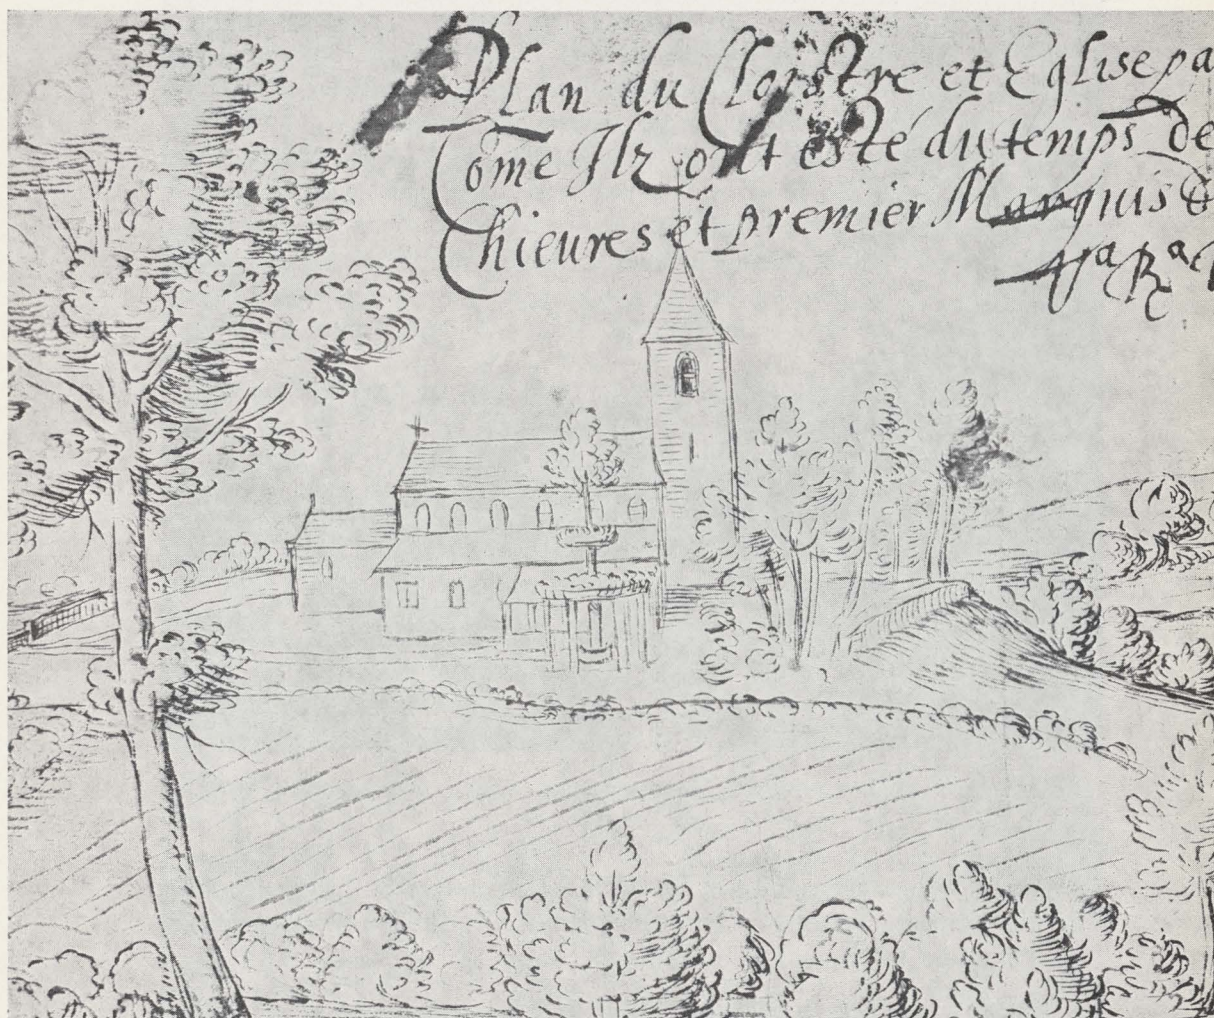 Plan du Cloistre et Eglise pa
Come Ilz ont esté du temps de
Chieures et premier Marquis